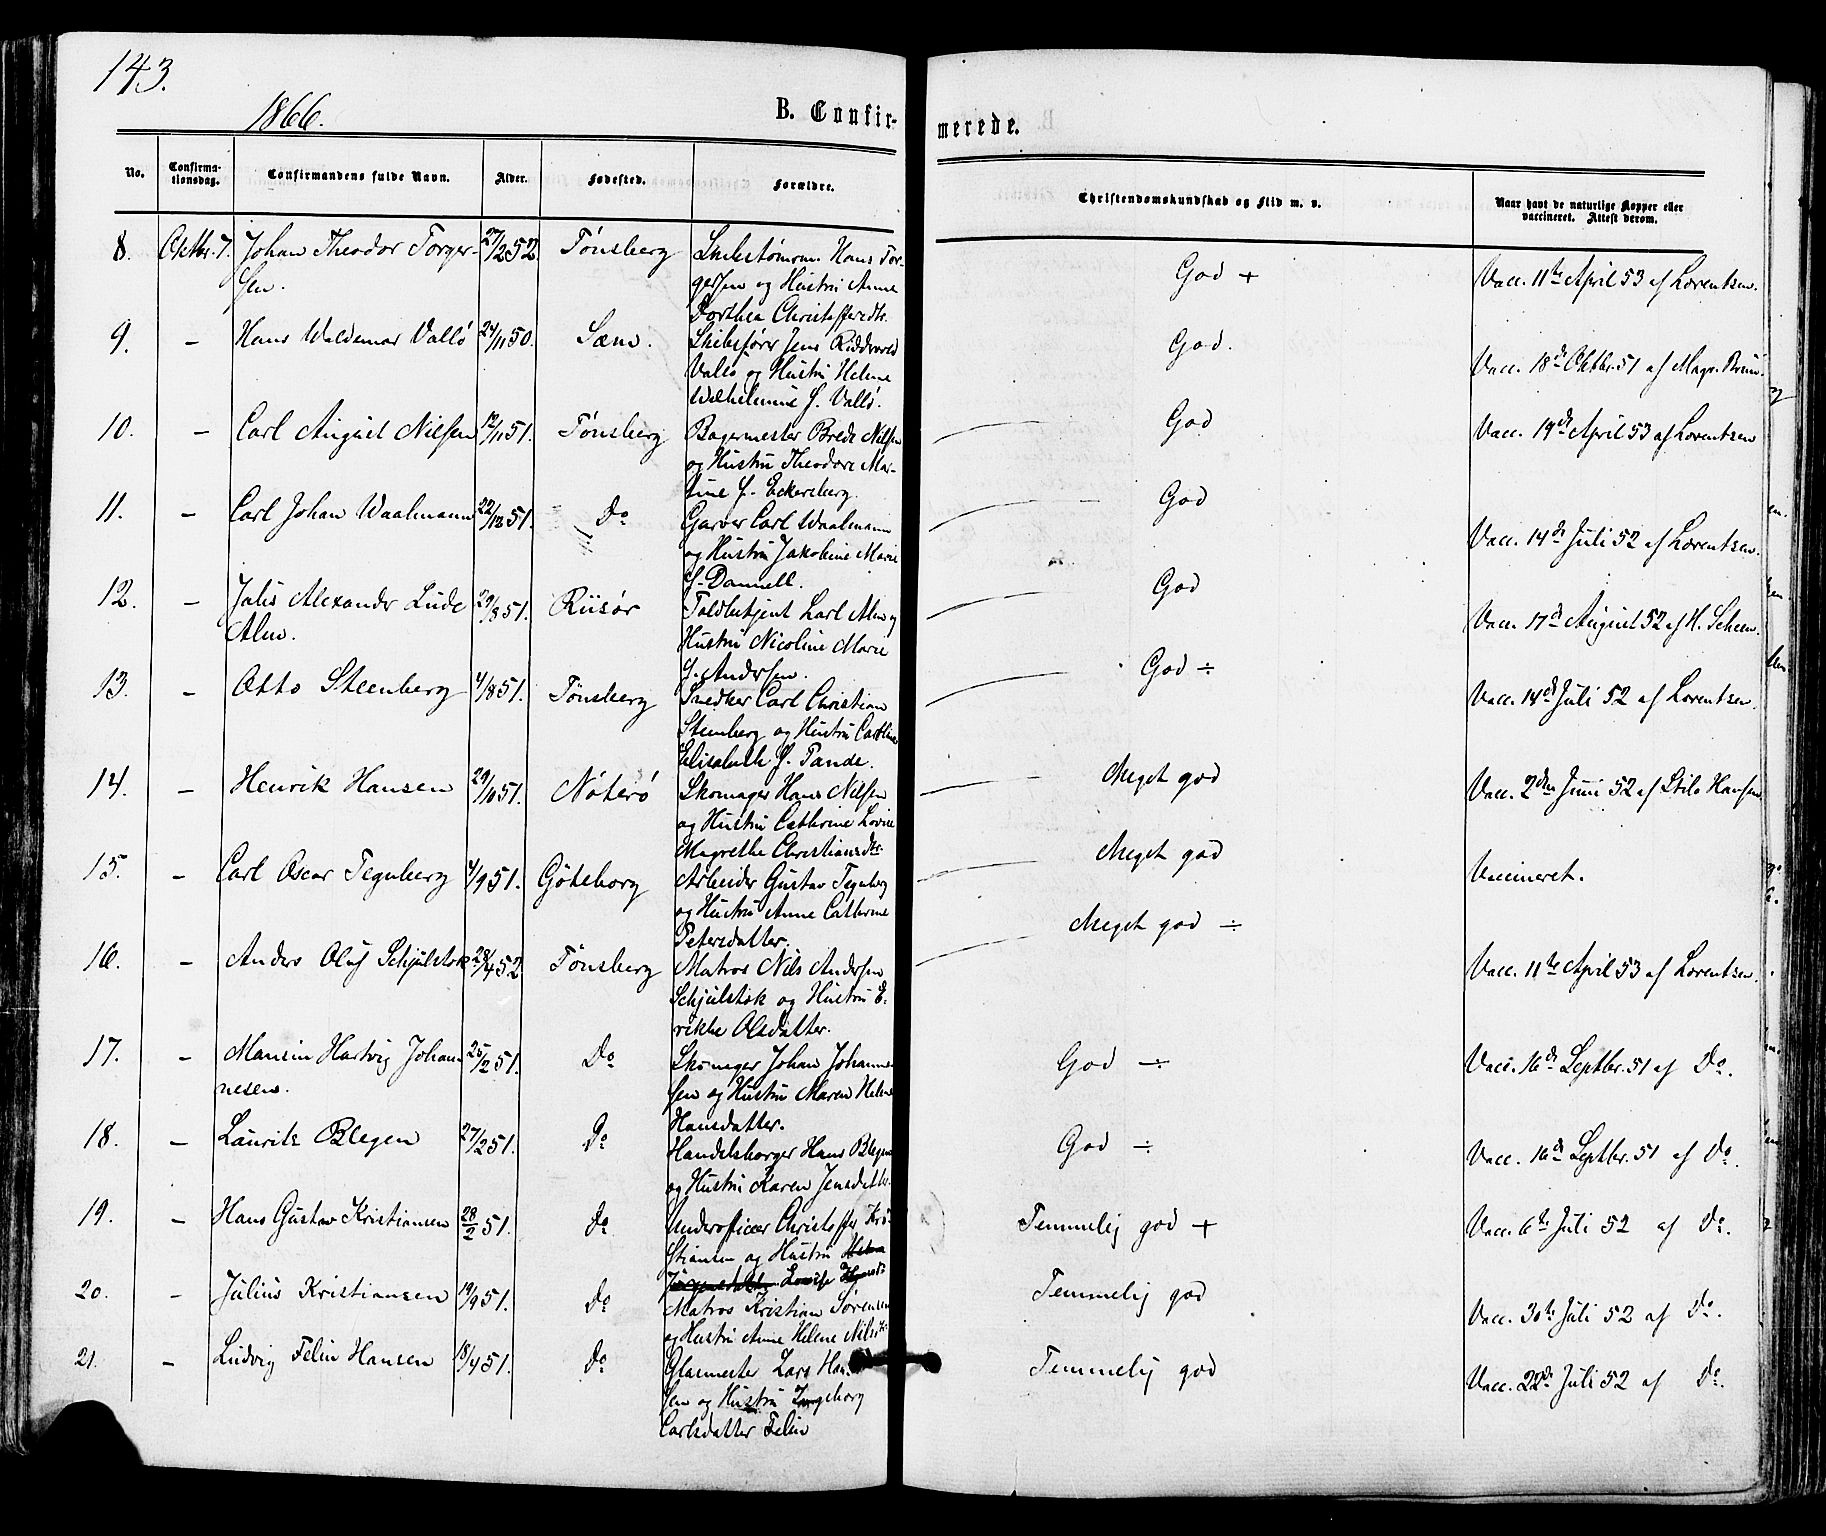 143.
1866.
B. Confir-
merede.
No.
Confirma-
tionsdag.
Confirmandens fulde Navn.
Alder.
Fødested.
Forældre.
Christendomskundskab og Flid m. v.
Naar havt de naturlige Kopper eller
vaccineret. Attest derom.
8. Oktbr. 7. Johan Theodor Torger- 27/2 52. Tönsberg Skibstømrm. Hans Tor- God + Vacc. 11te April 53 af Lorentsen.
sen. gersen og Hustru Anne
Dorthea Christoffersdtr.
9. - Hans Waldemar Vallö 24/11 50. Sæm. Skibsfører Jens Ridder God. Vacc. 18de Oktbr. 51 af Magn. Bruun.
Vallö og Hustru Helene
Wilhelmine f. Vallö.
10. - Carl August Nilsen 12/11 51. Tönsberg Bagermester Brede Nilsen God Vacc. 19de April 53 af Lorentsen
og Hustru Theodore Mar-
tine f. Eckersberg.
11. - Carl Johan Waalmann 22/12 51. Do Garver Carl Waalmann God Vacc. 14de Juli 52 af Lorentsen.
og Hustru Jakobine Marie
f. Dannell.
12. - Julis Alexander Lude 29/8 51. Riisör Toldbetjent Carl Alm og God Vacc. 17de August 52 af H. Scheen.
Alm. Hustru Nicoline Marie
f. Andersen.
13. - Otto Steenberg 4/8 51. Tönsberg Snedker Carl Christian God ÷ Vacc. 14de Juli 52 af Lorentsen.
Steenberg og Hustru Caroline
Elisabeth f. Tande.
14. - Henrik Hansen 29/10 51. Nöterö Skomager Hans Nilsen Meget god Vacc. 2den Juni 52 af Stilo Hansen.
og Hustru Cathrine Lovise
Magrethe Christiansdtr.
15. - Carl Oscar Tegnberg 4/9 51. Göteborg Arbeider Gustav Tegnberg Meget god Vaccineret.
og Hustru Anne Cathrine
Petersdatter.
16. - Anders Oluf Schjelstok 28/4 52 Tönsberg Matros Nils Andersen Meget god ÷ Vacc. 11te April 53 af Lorentsen.
Schjelstok og Hustru E-
rikke Olsdatter.
17. - Mansin Hartvig Johan- 25/2 51. Do Skomager Johan Johanne- God ÷ Vacc. 16de Septbr. 51 af Do.
nesen. sen og Hustru Maren Helene
Hansdatter.
18. - Lauritz Blegen 27/2 51. Do Handelsborger Hans Blegen God ÷ Vacc. 16de Septbr. 51 af Do.
og Hustru Karen Jensdatter.
19. - Hans Gustav Kristiansen 28/2 51. Do Underofficer Christoffer Kri- Temmelig god + Vacc. 6te Juli 52 af Do.
stiansen og Hustru
Jørgensdatter Lovise
20. - Julius Kristiansen 19/9 51. Do Matros Kristian Sørensen Temmelig god Vacc. 30te Juli 52 af Do.
og Hustru Anne Helene Nilsdtr.
21. - Ludvig Felin Hansen 18/4 51. Do Glasmester Lars Han- Temmelig god Vacc. 22de Juli 52 af Do.
sen og Hustru Ingeborg
Carlsdatter Felin